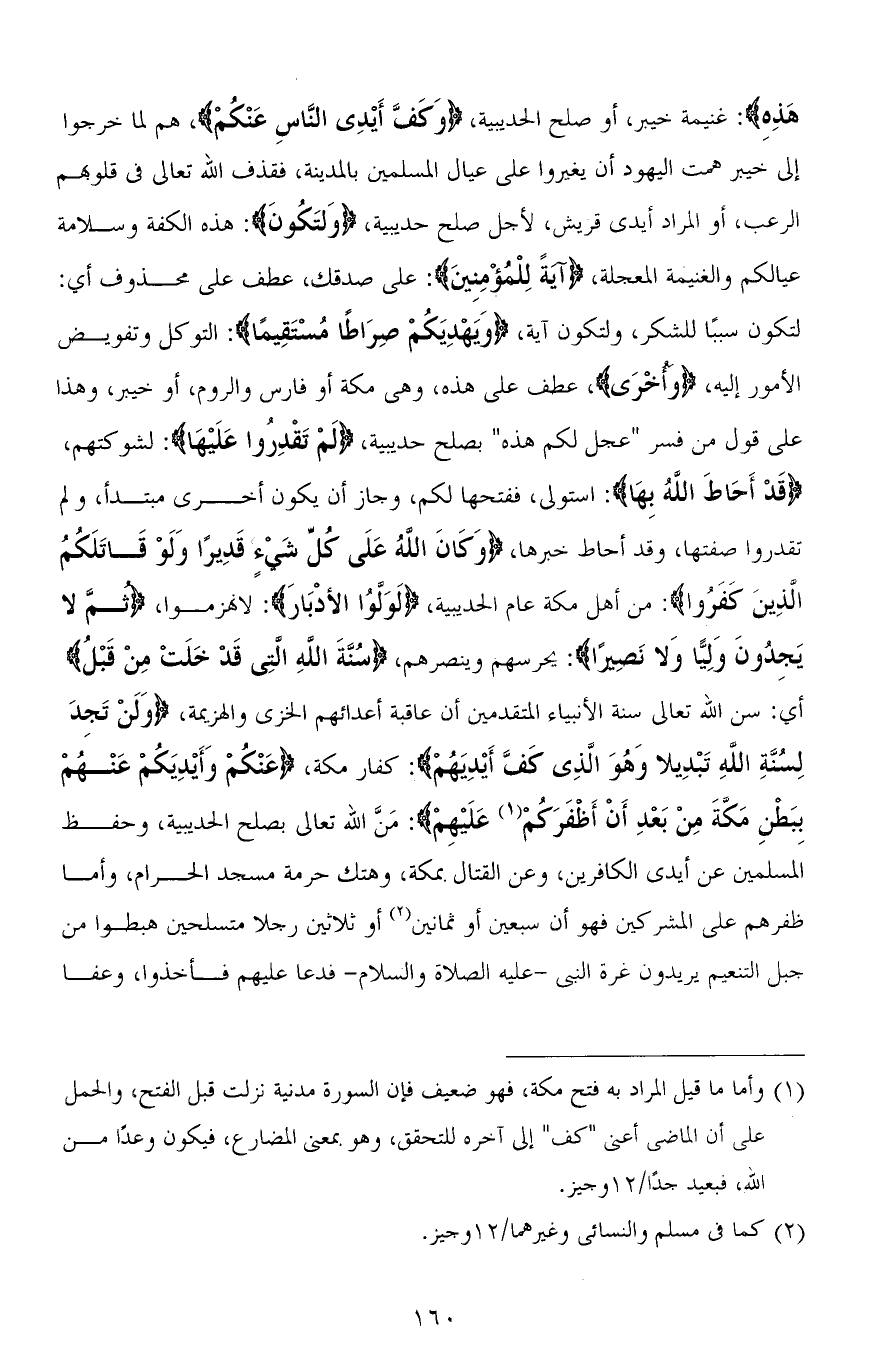 هَذِهِ﴾: غنيمة خيبر، أو صلح الحديبية، ﴿وَكَفَّ أَيْدِى النَّاسِ عَنْكُمْ﴾، هم لما خرجوا
إلى خيبر همت اليهود أن يغيروا على عيال المسلمين بالمدينة، فقذف الله تعالى فى قلوبهم
الرعب، أو المراد أيدى قريش، لأجل صلح حديبية، ﴿وَلِتَكُونَ﴾: هذه الكفة وسلامة
عيالكم والغنيمة المعجلة، ﴿آيَةً لِلْمُؤْمِنِينَ﴾: على صدقك، عطف على محذوف أي:
لتكون سببًا للشكر، ولتكون آية، ﴿وَيَهْدِيَكُمْ صِرَاطًا مُسْتَقِيمًا﴾: التوكل وتفويض
الأمور إليه، ﴿وَأُخْرَى﴾، عطف على هذه، وهى مكة أو فارس والروم، أو خيبر، وهذا
على قول من فسر "عجل لكم هذه" بصلح حديبية، ﴿لَمْ تَقْدِرُوا عَلَيْهَا﴾: لشوكتهم،
﴿قَدْ أَحَاطَ اللَّهُ بِهَا﴾: استولى، ففتحها لكم، وجاز أن يكون أخرى مبتدأ، ولم
تقدروا صفتها، وقد أحاط خبرها، ﴿وَكَانَ اللَّهُ عَلَى كُلِّ شَيْءٍ قَدِيرًا وَلَوْ قَاتَلَكُمُ
الَّذِينَ كَفَرُوا﴾: من أهل مكة عام الحديبية، ﴿لَوَلَّوُا الأَدْبَارَ﴾: لانهزموا، ﴿ثُمَّ لا
يَجِدُونَ وَلِيًّا وَلا نَصِيرًا﴾: يحرسهم وينصرهم، ﴿سُنَّةَ اللَّهِ الَّتِى قَدْ خَلَتْ مِنْ قَبْلُ﴾
أي: سن الله تعالى سنة الأنبياء المتقدمين أن عاقبة أعدائهم الخزى والهزيمة، ﴿وَلَنْ تَجِدَ
لِسُنَّةِ اللَّهِ تَبْدِيلا وَهُوَ الَّذِى كَفَّ أَيْدِيَهُمْ﴾: كفار مكة، ﴿عَنْكُمْ وَأَيْدِيَكُمْ عَنْهُمْ
بِبَطْنِ مَكَّةَ مِنْ بَعْدِ أَنْ أَظْفَرَكُمْ(١) عَلَيْهِمْ﴾: مَنَّ الله تعالى بصلح الحديبية، وحفظ
المسلمين عن أيدى الكافرين، وعن القتال بمكة، وهتك حرمة مسجد الحرام، وأما
ظفرهم على المشركين فهو أن سبعين أو ثمانين(٢) أو ثلاثين رجلا متسلحين هبطوا من
جبل التنعيم يريدون غرة النبى -عليه الصلاة والسلام- فدعا عليهم فأخذوا، وعفا
(١) وأما ما قيل المراد به فتح مكة، فهو ضعيف فإن السورة مدنية نزلت قبل الفتح، والحمل
على أن الماضى أعنى "كف" إلى آخره للتحقق، وهو بمعنى المضارع، فيكون وعدًا من
الله، فبعيد جدًا/١٢وجيز.
(٢) كما فى مسلم والنسائى وغيرهما/١٢وجيز.
١٦٠